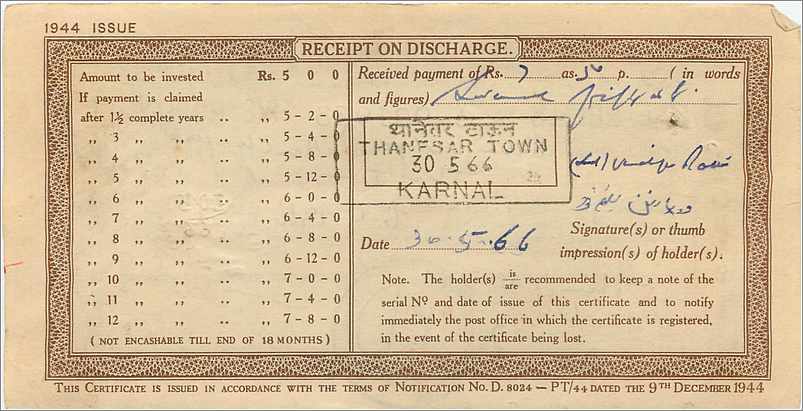 1944 ISSUE
RECEIPT ON DISCHARGE.
Amount to be invested Rs. 5 0 0
If payment is claimed
after 1½ complete years .. ,, 5 - 2 - 0
,, 3 ,, ,, .. ,, 5 - 4 - 0
,, 4 ,, ,, .. ,, 5 - 8 - 0
,, 5 ,, ,, .. ,, 5 - 12 - 0
,, 6 ,, ,, .. ,, 6 - 0 - 0
,, 7 ,, ,, .. ,, 6 - 4 - 0
,, 8 ,, ,, .. ,, 6 - 8 - 0
,, 9 ,, ,, .. ,, 6 - 12 - 0
,, 10 ,, ,, .. ,, 7 - 0 - 0
,, 11 ,, ,, .. ,, 7 - 4 - 0
,, 12 ,, ,, .. ,, 7 - 8 - 0
(NOT ENCASHABLE TILL END OF 18 MONTHS)
Received payment of Rs. 7 as. 50 p. ( in words
and figures)
थानेसर टाऊन
THANESAR TOWN
30 5 66
KARNAL
Signature(s) or thumb
impression(s) of holder(s).
Date 30.5.66
Note. The holder(s) is/are recommended to keep a note of the
serial Nº and date of issue of this certificate and to notify
immediately the post office in which the certificate is registered,
in the event of the certificate being lost.
THIS CERTIFICATE IS ISSUED IN ACCORDANCE WITH THE TERMS OF NOTIFICATION NO. D. 8024 — PT/44 DATED THE 9TH DECEMBER 1944